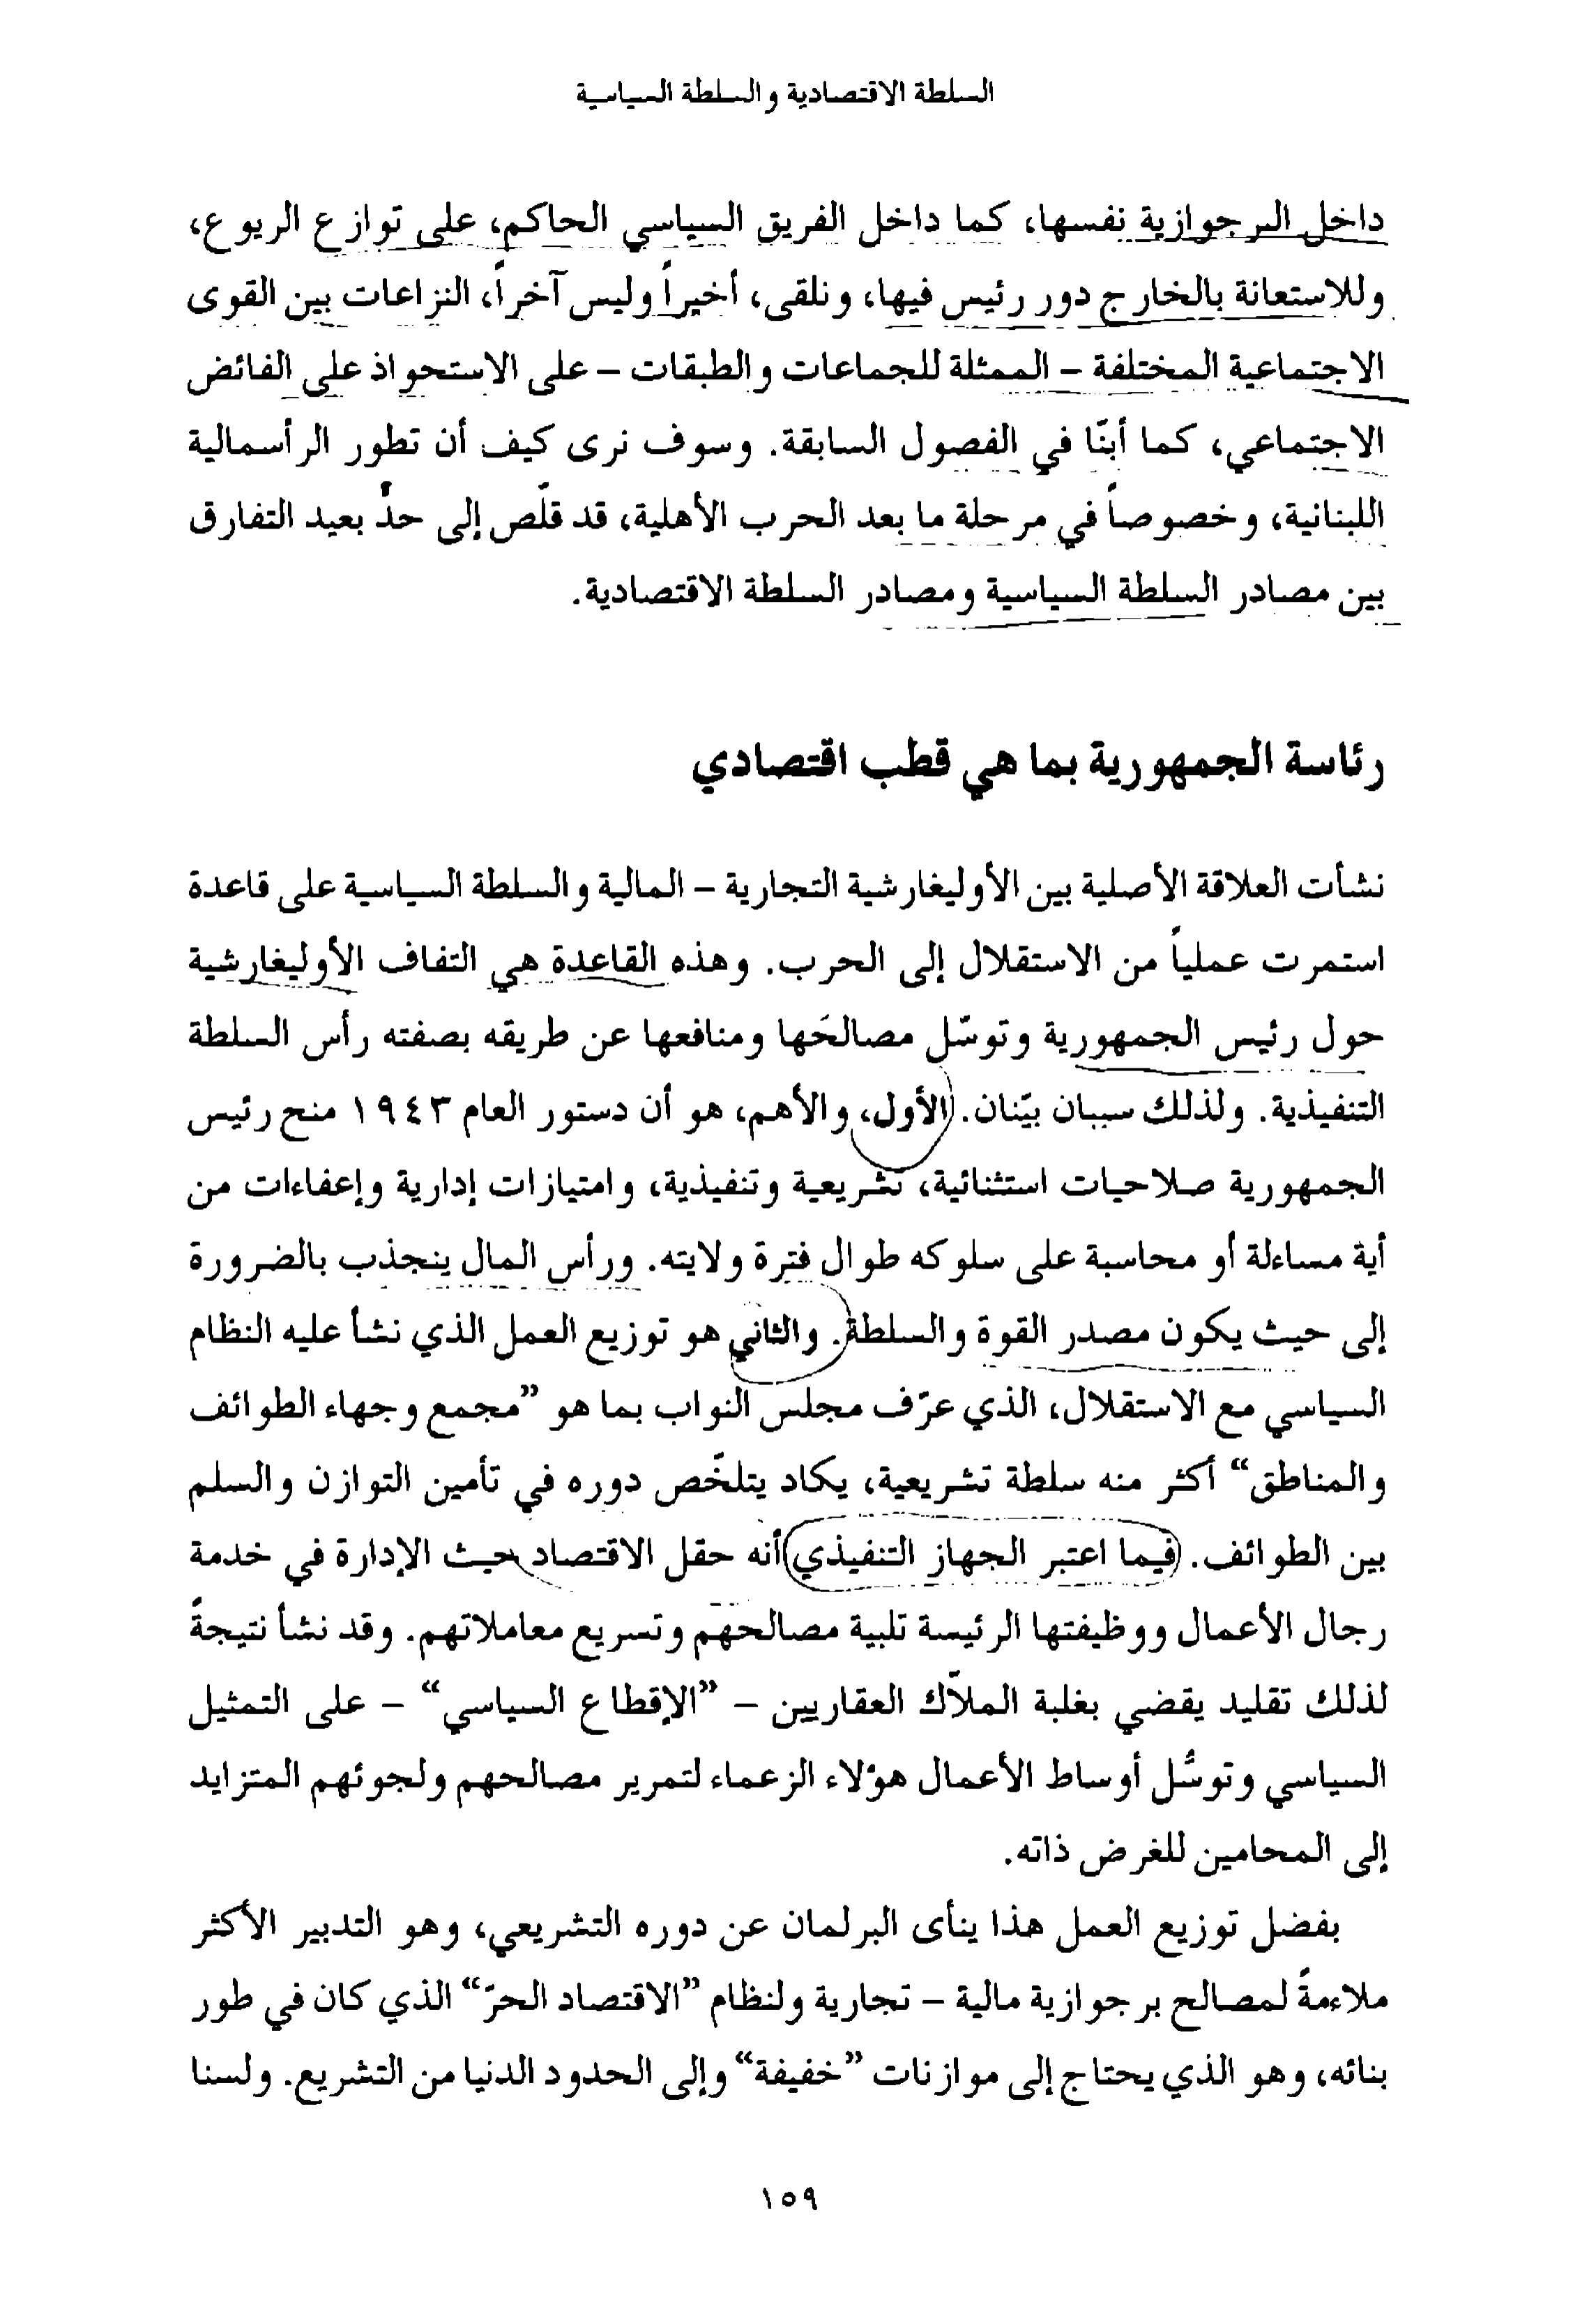 السلطة الاقتصادية والسلطة السياسية
داخل البرجوازية نفسها، كما داخل الفريق السياسي الحاكم، على توازع الريوع،
وللاستعانة بالخارج دور رئيس فيها، ونلقى، أخيراً وليس آخراً، النزاعات بين القوى
الاجتماعية المختلفة – الممثلة للجماعات والطبقات – على الاستحواذ على الفائض
الاجتماعي، كما أبنّا في الفصول السابقة. وسوف نرى كيف أن تطور الرأسمالية
اللبنانية، وخصوصاً في مرحلة ما بعد الحرب الأهلية، قد قلّص إلى حدٍّ بعيد التفارق
بين مصادر السلطة السياسية ومصادر السلطة الاقتصادية.
رئاسة الجمهورية بما هي قطب اقتصادي
نشأت العلاقة الأصلية بين الأوليغارشية التجارية – المالية والسلطة السياسية على قاعدة
استمرت عملياً من الاستقلال إلى الحرب. وهذه القاعدة هي التفاف الأوليغارشية
حول رئيس الجمهورية وتوسّل مصالحَها ومنافعها عن طريقه بصفته رأس السلطة
التنفيذية. ولذلك سببان بيّنان. الأول، والأهم، هو أن دستور العام ١٩٤٣ منح رئيس
الجمهورية صلاحيات استثنائية، تشريعية وتنفيذية، وامتيازات إدارية وإعفاءات من
أية مساءلة أو محاسبة على سلوكه طوال فترة ولايته. ورأس المال ينجذب بالضرورة
إلى حيث يكون مصدر القوة والسلطة. والثاني هو توزيع العمل الذي نشأ عليه النظام
السياسي مع الاستقلال، الذي عرّف مجلس النواب بما هو ”مجمع وجهاء الطوائف
والمناطق“ أكثر منه سلطة تشريعية، يكاد يتلخّص دوره في تأمين التوازن والسلم
بين الطوائف. فيما اعتبر الجهاز التنفيذي أنه حقل الاقتصاد حيث الإدارة في خدمة
رجال الأعمال ووظيفتها الرئيسة تلبية مصالحهم وتسريع معاملاتهم. وقد نشأ نتيجةً
لذلك تقليد يقضي بغلبة الملاّك العقاريين – ”الإقطاع السياسي“ – على التمثيل
السياسي وتوسُّل أوساط الأعمال هؤلاء الزعماء لتمرير مصالحهم ولجوئهم المتزايد
إلى المحامين للغرض ذاته.
بفضل توزيع العمل هذا ينأى البرلمان عن دوره التشريعي، وهو التدبير الأكثر
ملاءمةً لمصالح برجوازية مالية – تجارية ولنظام ”الاقتصاد الحرّ“ الذي كان في طور
بنائه، وهو الذي يحتاج إلى موازنات ”خفيفة“ وإلى الحدود الدنيا من التشريع. ولسنا
١٥٩